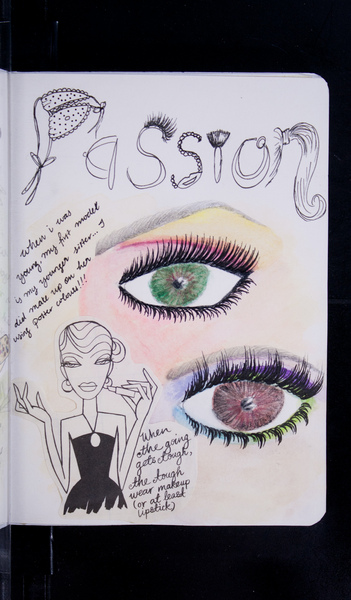 Passion
when i was
young, my first model
is my younger sister... I
did make up on her
using poster colours!!!
When
the going
gets tough,
the tough
wear makeup
(or at least
lipstick)